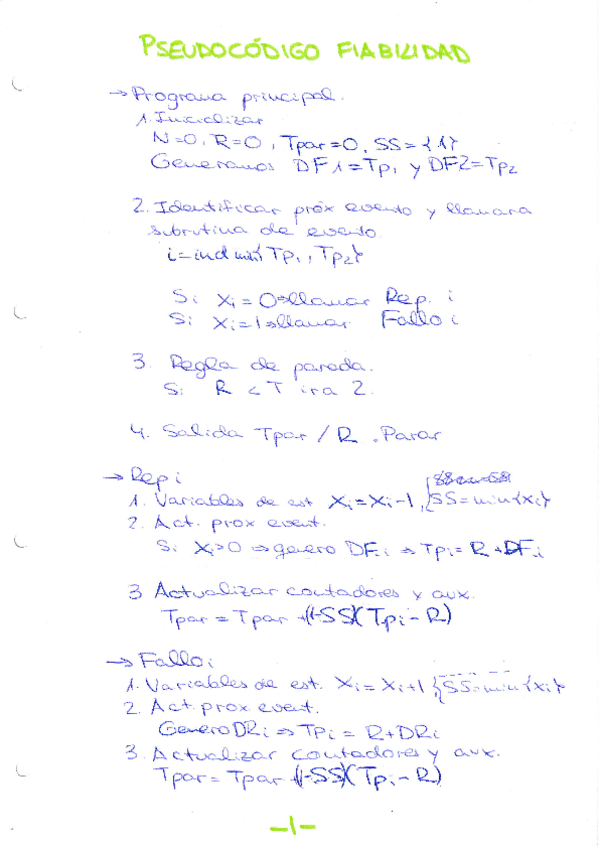 PSEUDOCÓDIGO FIABILIDAD
→ Programa principal.
1. Inicializar
N=0, R=0, Tpar=0, SS={1}
Generamos DF1=Tp1 y DF2=Tp2
2. Identificar próx evento y llamara
subrutina de evento
i=ind min{Tp1, Tp2}
Si Xi=0⇒llamar Rep. i
Si Xi=1⇒llamar Fallo i
3. Regla de parada.
Si R<T ir a 2.
4. Salida Tpar/R. Parar
→ Rep i
1. Variables de est Xi=Xi-1, SS=min{Xi}
2. Act. prox event.
Si Xi>0 ⇒ genero DFi ⇒ Tpi=R+DFi
3 Actualizar contadores y aux.
Tpar=Tpar+(1-SS)(Tpi-R)
→ Fallo i
1. Variables de est. Xi=Xi+1 {SS=min{Xi}
2. Act prox event.
Genero DRi ⇒ TPi=R+DRi
3. Actualizar contadores y aux.
Tpar=Tpar+(1-SS)(Tpi-R)
-1-